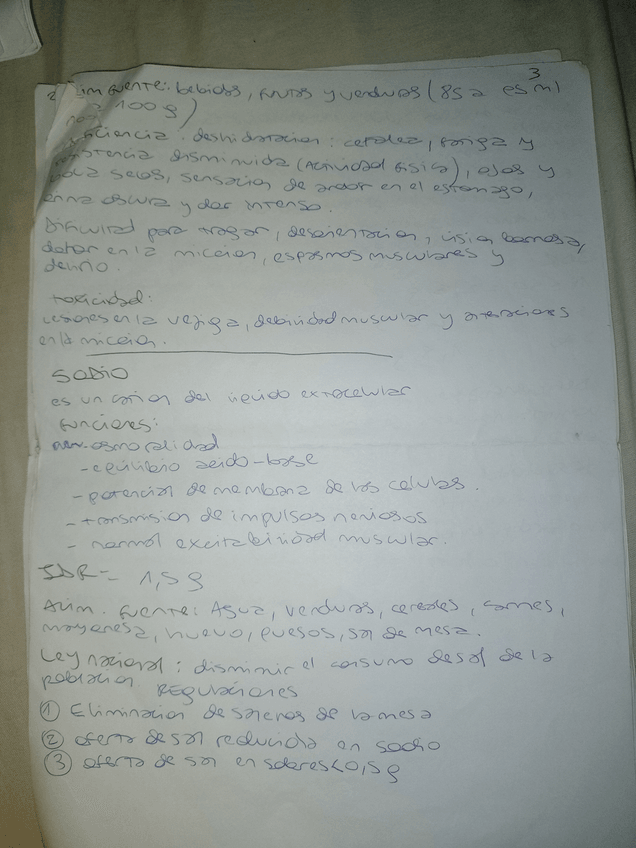 3
Alim fuente: bebidas, frutas y verduras (85 a 95 ml
100 g)
deshidratacion: cefalea, fatiga y
disminuida (Actividad fisica), ojos y
secos, sensacion de ardor en el estomago,
orina oscura y olor intenso.
Dificultad para tragar, desorientacion, vision borrosa,
dolor en la miccion, espasmos musculares y
delirio.
toxicidad:
Lesiones en la vejiga, debilidad muscular y alteraciones
en la miccion.
SODIO
es un cation del liquido extracelular
funciones:
osmolalidad
- equilibrio acido-base
- potencial de membrana de las celulas.
- transmision de impulsos nerviosos
- normal excitabilidad muscular.
IDR = 1,5 g
Alim. fuente: Agua, verduras, cereales, carnes,
mayonesa, huevo, quesos, sal de mesa.
Ley nacional: disminuir el consumo de sal de la
poblacion REGulaciones
① Eliminacion de saleros de la mesa
② oferta de sal reducida en sodio
③ oferta de sal en sobres <0,5 g